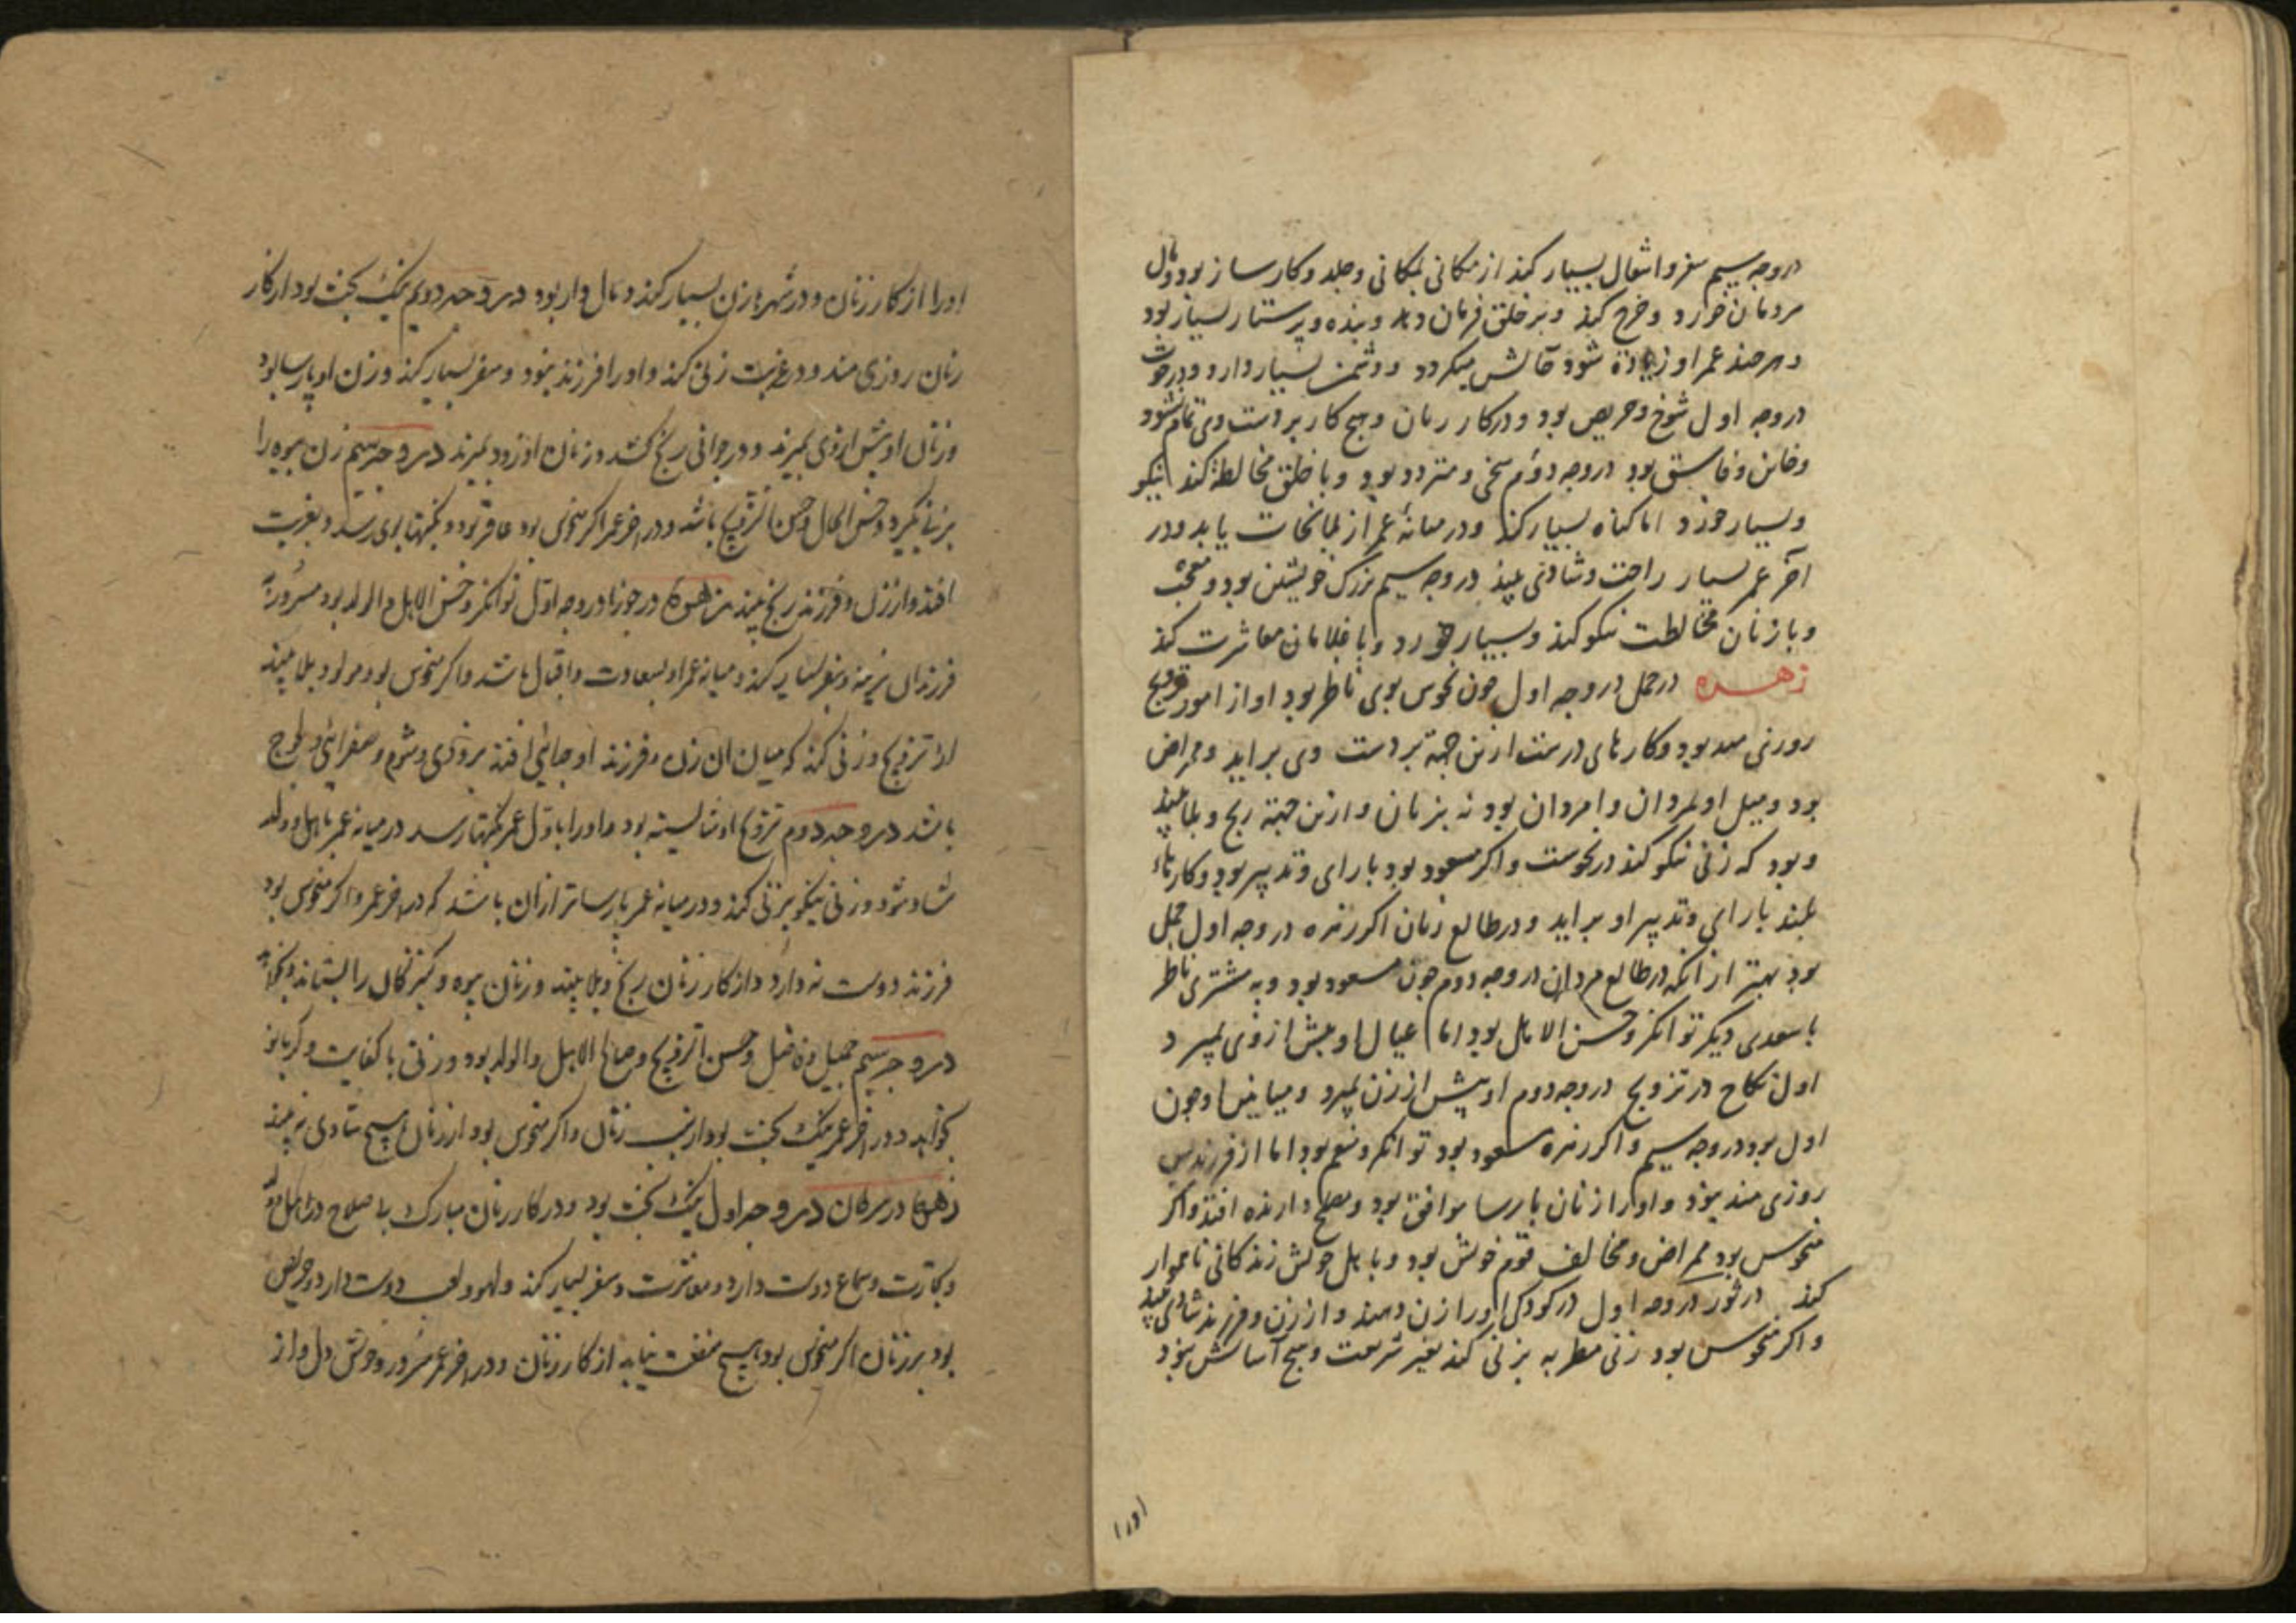 در وجه سیم سفر و اشغال بسیار کند از مکانی بمکانی و جلد و کارساز بود و مال
مردمان خورد و خرج کند و بر خلق فرمان دهد و بنده و پرستار بسیار بود
و هر چند عمر او زیادة شود حالش میگردد و دشمن بسیار دارد
در وجه اول شوخ و حریص بود و در کار زنان و هیچ کار بر دست وی تمام نشود
و خاین و فاسق بود در وجه دوم سخی و متردد بود و با خلق مخالطة کند نیکو
و بسیار خورد اما گناه بسیار کند و در میانهٔ عمر از بلا نجات یابد و در
آخر عمر بسیار راحت و شادی بیند در وجه سیم بزرگ خویشتن بود و معجب
و با زنان مخالطت نیکو کند و بسیار خورد و با غلامان معاشرت کند
زهـــره در حمل در وجه اول چون نحوس بوی ناظر بود او از امور تزویج
بود و کارهای درست ازین جهة بر دست وی براید و ممراض
بود و میل او بمردان و امردان بود نه بزنان و ازین جهة رنج و بلا بیند
و بود که زنی نیکو کند در نحوست و اگر مسعود بود با رای و تدبیر بود و کارهاء
بلند بارای و تدبیر او براید و در طالع زنان اگر زهره در وجه اول حمل
بود بهتر از انکه در طالع مردان در وجه دوم چون مسعود بود و به مشتری ناظر
با سعدی دیگر توانگر و حسن الامل بود اما عیال او پیش از وی بمیرد
اول نکاح در تزویج در وجه دوم او پیش از زن بمیرد و چون
اول بود در وجه سیم و اگر زهره مسعود بود توانگر و منعم بود اما از فرزند
روزی مند بود و او را زنان پارسا موافق بود و مصلح دارنده افتد و اگر
منحوس بود ممراض و مخالف قوم خویش بود و با اهل خویش زندگانی ناهموار
کند در ثور در وجه اول در کودکی او را زن دهند و از زن و فرزند شادی بیند
و اگر منحوس بود زنی مطربه بزنی کند بغیر شریعت و هیچ آسایش نبود
اورا
اورا از کار زنان و در شهرها زن بسیار کند و مال دار بود در وجه دویم نیک بخت بود از کار
زنان روزی مند و در غربت زنی کند و اورا فرزند نبود و سفر بسیار کند و زن او پارسا بود
و زنان او پیش از وی بمیرند و در جوانی رنج کشد و زنان او زود بمیرند در وجه سیم زن بیوه را
بزنی گیرد و حسن الحال و حسن التزویج باشد و در اخر عمر اگر منحوس بود عاقر بود و نکبتها بوی رسد و بغربت
افتد و از زن و فرزند رنج بیند زهره در جوزا در وجه اول توانگر و حسن الاهل و الولد بود
فرزندان نرینه و سفر بسیار کند و میانه عمر او بسعادت و اقبال باشد و اگر منحوس بود بلا بیند
از تزویج و زنی کند که میان ان زن و فرزند او جدائی افتد بزودی و شوم و صفرائی
باشد در وجه دوم تزویج او شایسته بود و اورا باول عمر نکبتها رسد در میانه عمر باهل و ولد
شاد شود و زنی نیکو بزنی کند و در میانه عمر پارساتر از ان باشد که در اخر عمر و اگر منحوس بود
فرزند دوست نه دارد و از کار زنان رنج و بلا بیند و زنان بیوه و کنیزکان را بستاند
در وجه سیم جمیل و فاضل و حسن التزویج و صالح الاهل و الولد بود و زنی با کفایت و کدبانو
بخواهد و در اخر عمر نیک بخت بود از سبب زنان و اگر منحوس بود از زنان هیچ شادی نه بیند
زهره در سرطان در وجه اول نیک بخت بود و در کار زنان مبارک با صلاح
و تجارت و سماع دوست دارد و معاشرت و سفر بسیار کند و لهو و لعب دوست دارد و حریص
بود بر زنان اگر منحوس بود هیچ منفعت نیابد از کار زنان و در اخر عمر مسرور و خوش دل و از